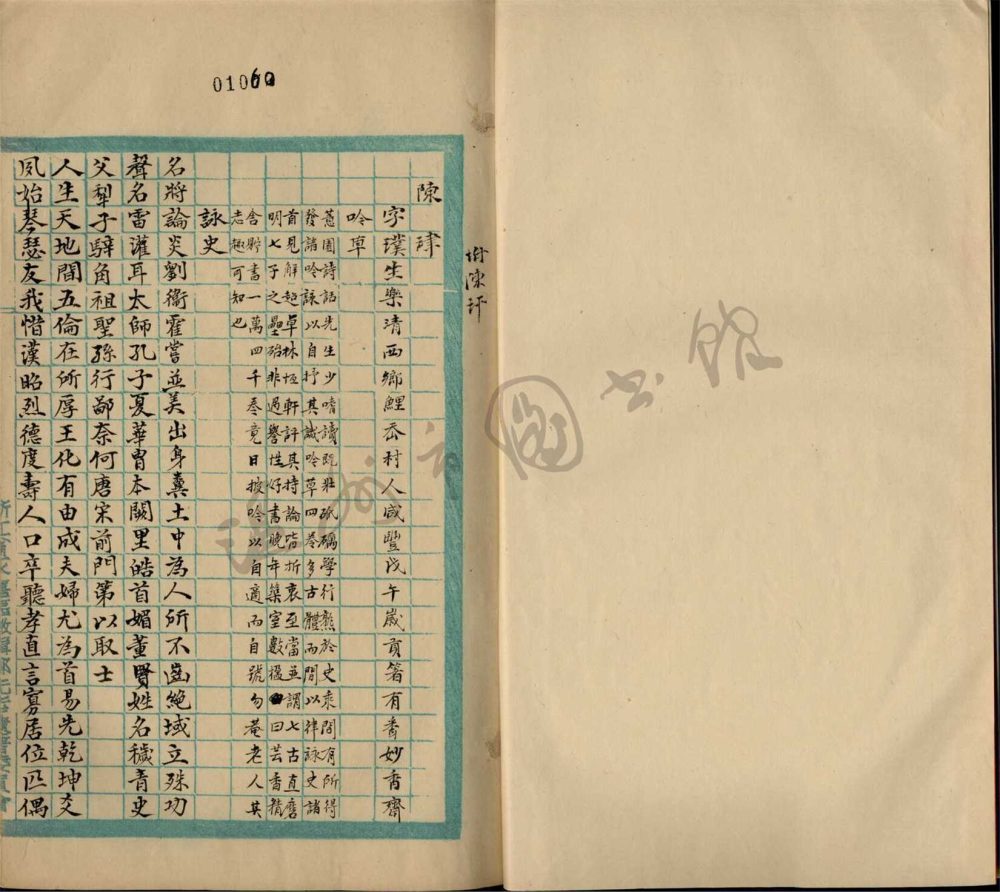 01060
附陳玕
陳瑋
字璞生樂清西鄉鯉岙村人咸豐戊午歲貢箸有香妙香齋
吟草
蕙園詩話先生少嗜讀既壯砥礪學行熊於史乘間有所得
發諸吟詠以自抒其誠吟草四卷多古體而間以律詠史諸
首見解超卓林恆軒評其持論皆折衷至當並謂七古直磨
明七子之壘殆非過譽性好書晚年築室數楹曰芸香精
舍貯書一萬四千卷竟日披吟以自適而自號勿菴老人其
志趣可知也
詠史
名將論炎劉衞霍當並美出身糞土中為人所不齒絕域立殊功
聲名雷灌耳太師孔子夏華冑本闕里皓首媚董賢姓名穢青史
父犁子騂角祖聖孫行鄙奈何唐宋前門第以取士
人生天地間五倫在所厚王化有由成夫婦尤為首易先乾坤交
夙始琴瑟友我惜漢昭烈德度壽人口卒聽孝直言寡居位匹偶
溫州市圖書館